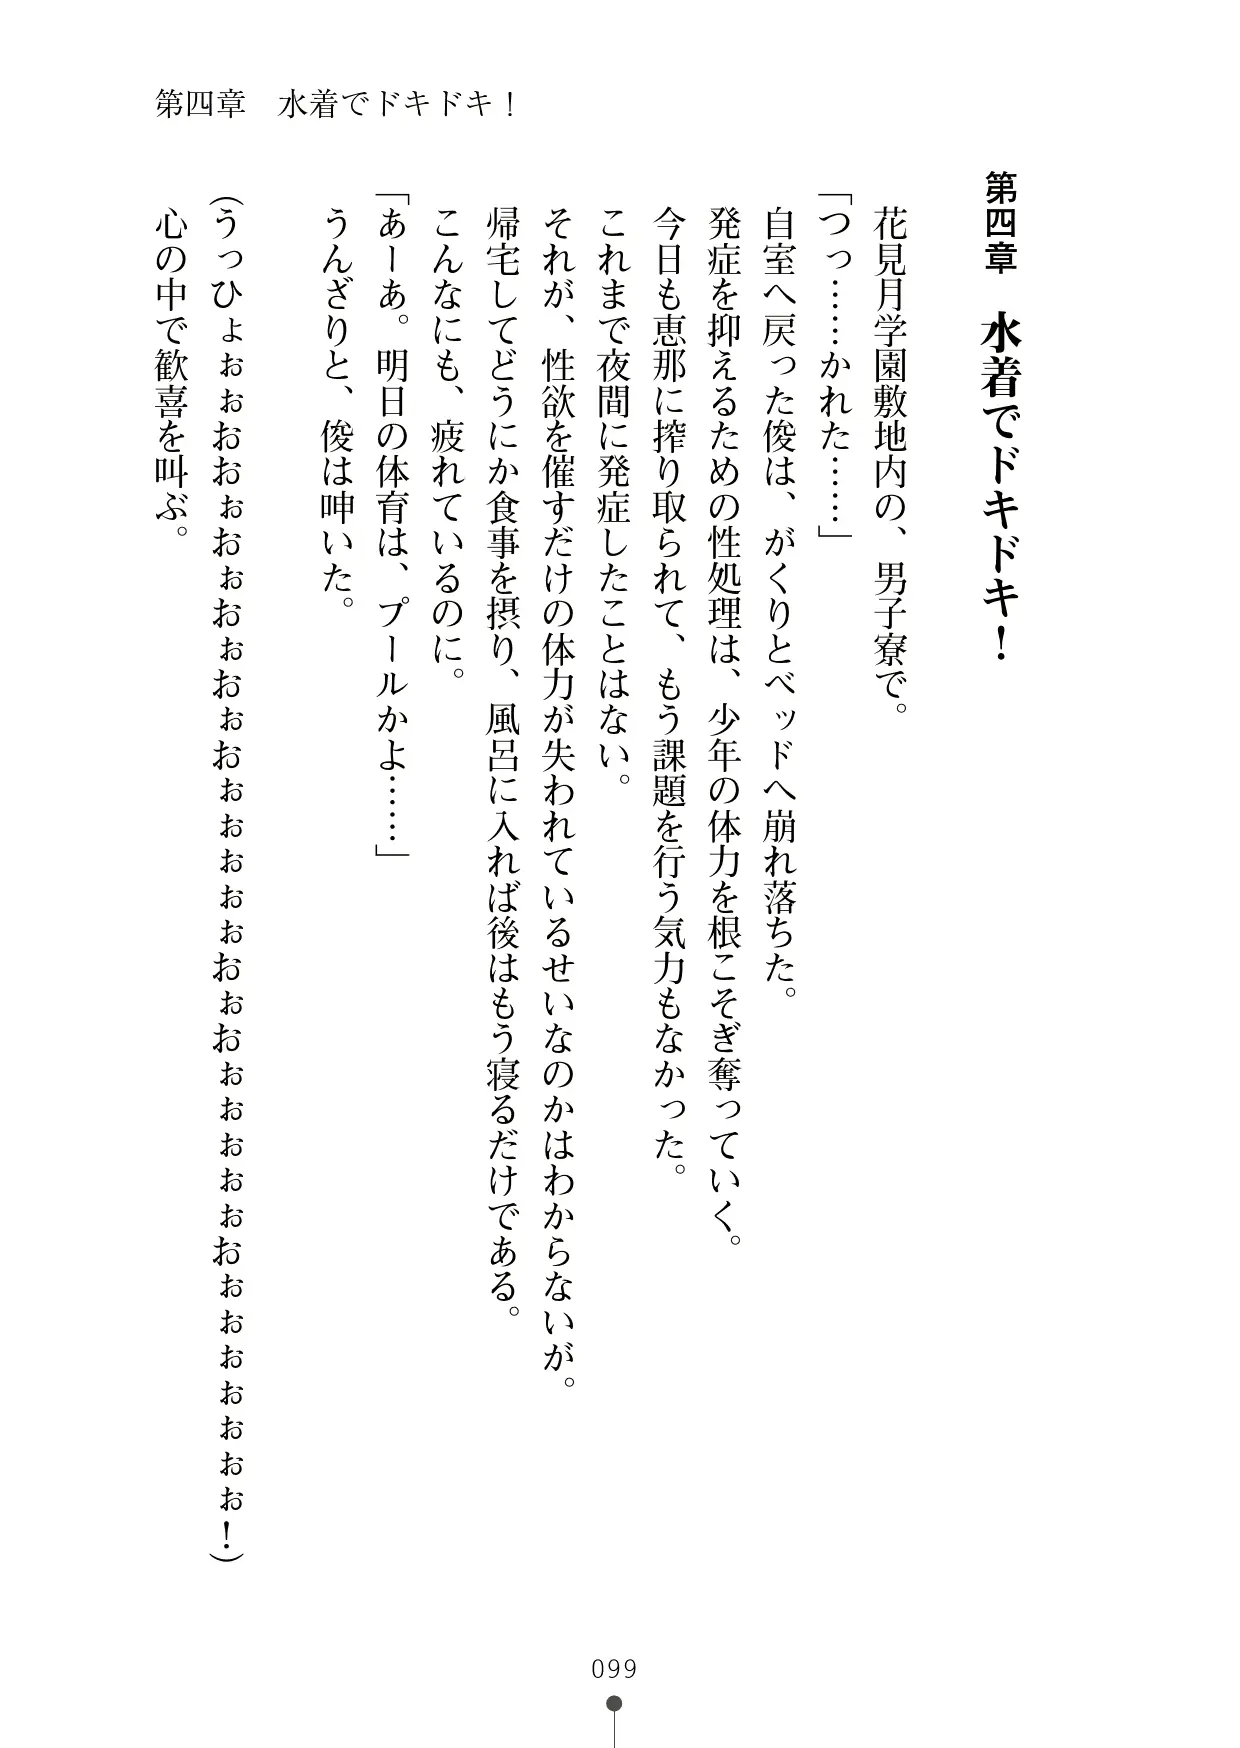 第四章　水着でドキドキ！
第四章　水着でドキドキ！
花見月学園敷地内の、男子寮で。
「つっ……かれた……」
自室へ戻った俊は、がくりとベッドへ崩れ落ちた。
発症を抑えるための性処理は、少年の体力を根こそぎ奪っていく。
今日も恵那に搾り取られて、もう課題を行う気力もなかった。
これまで夜間に発症したことはない。
それが、性欲を催すだけの体力が失われているせいなのかはわからないが。
帰宅してどうにか食事を摂り、風呂に入れば後はもう寝るだけである。
こんなにも、疲れているのに。
「あーあ。明日の体育は、プールかよ……」
うんざりと、俊は呻いた。
（うっひょぉぉおおぉおぉおぉおぉおぉぉぉぉぉおぉおぉぉぉぉぉおぉぉぉぉぉぉぉ！）
心の中で歓喜を叫ぶ。
099